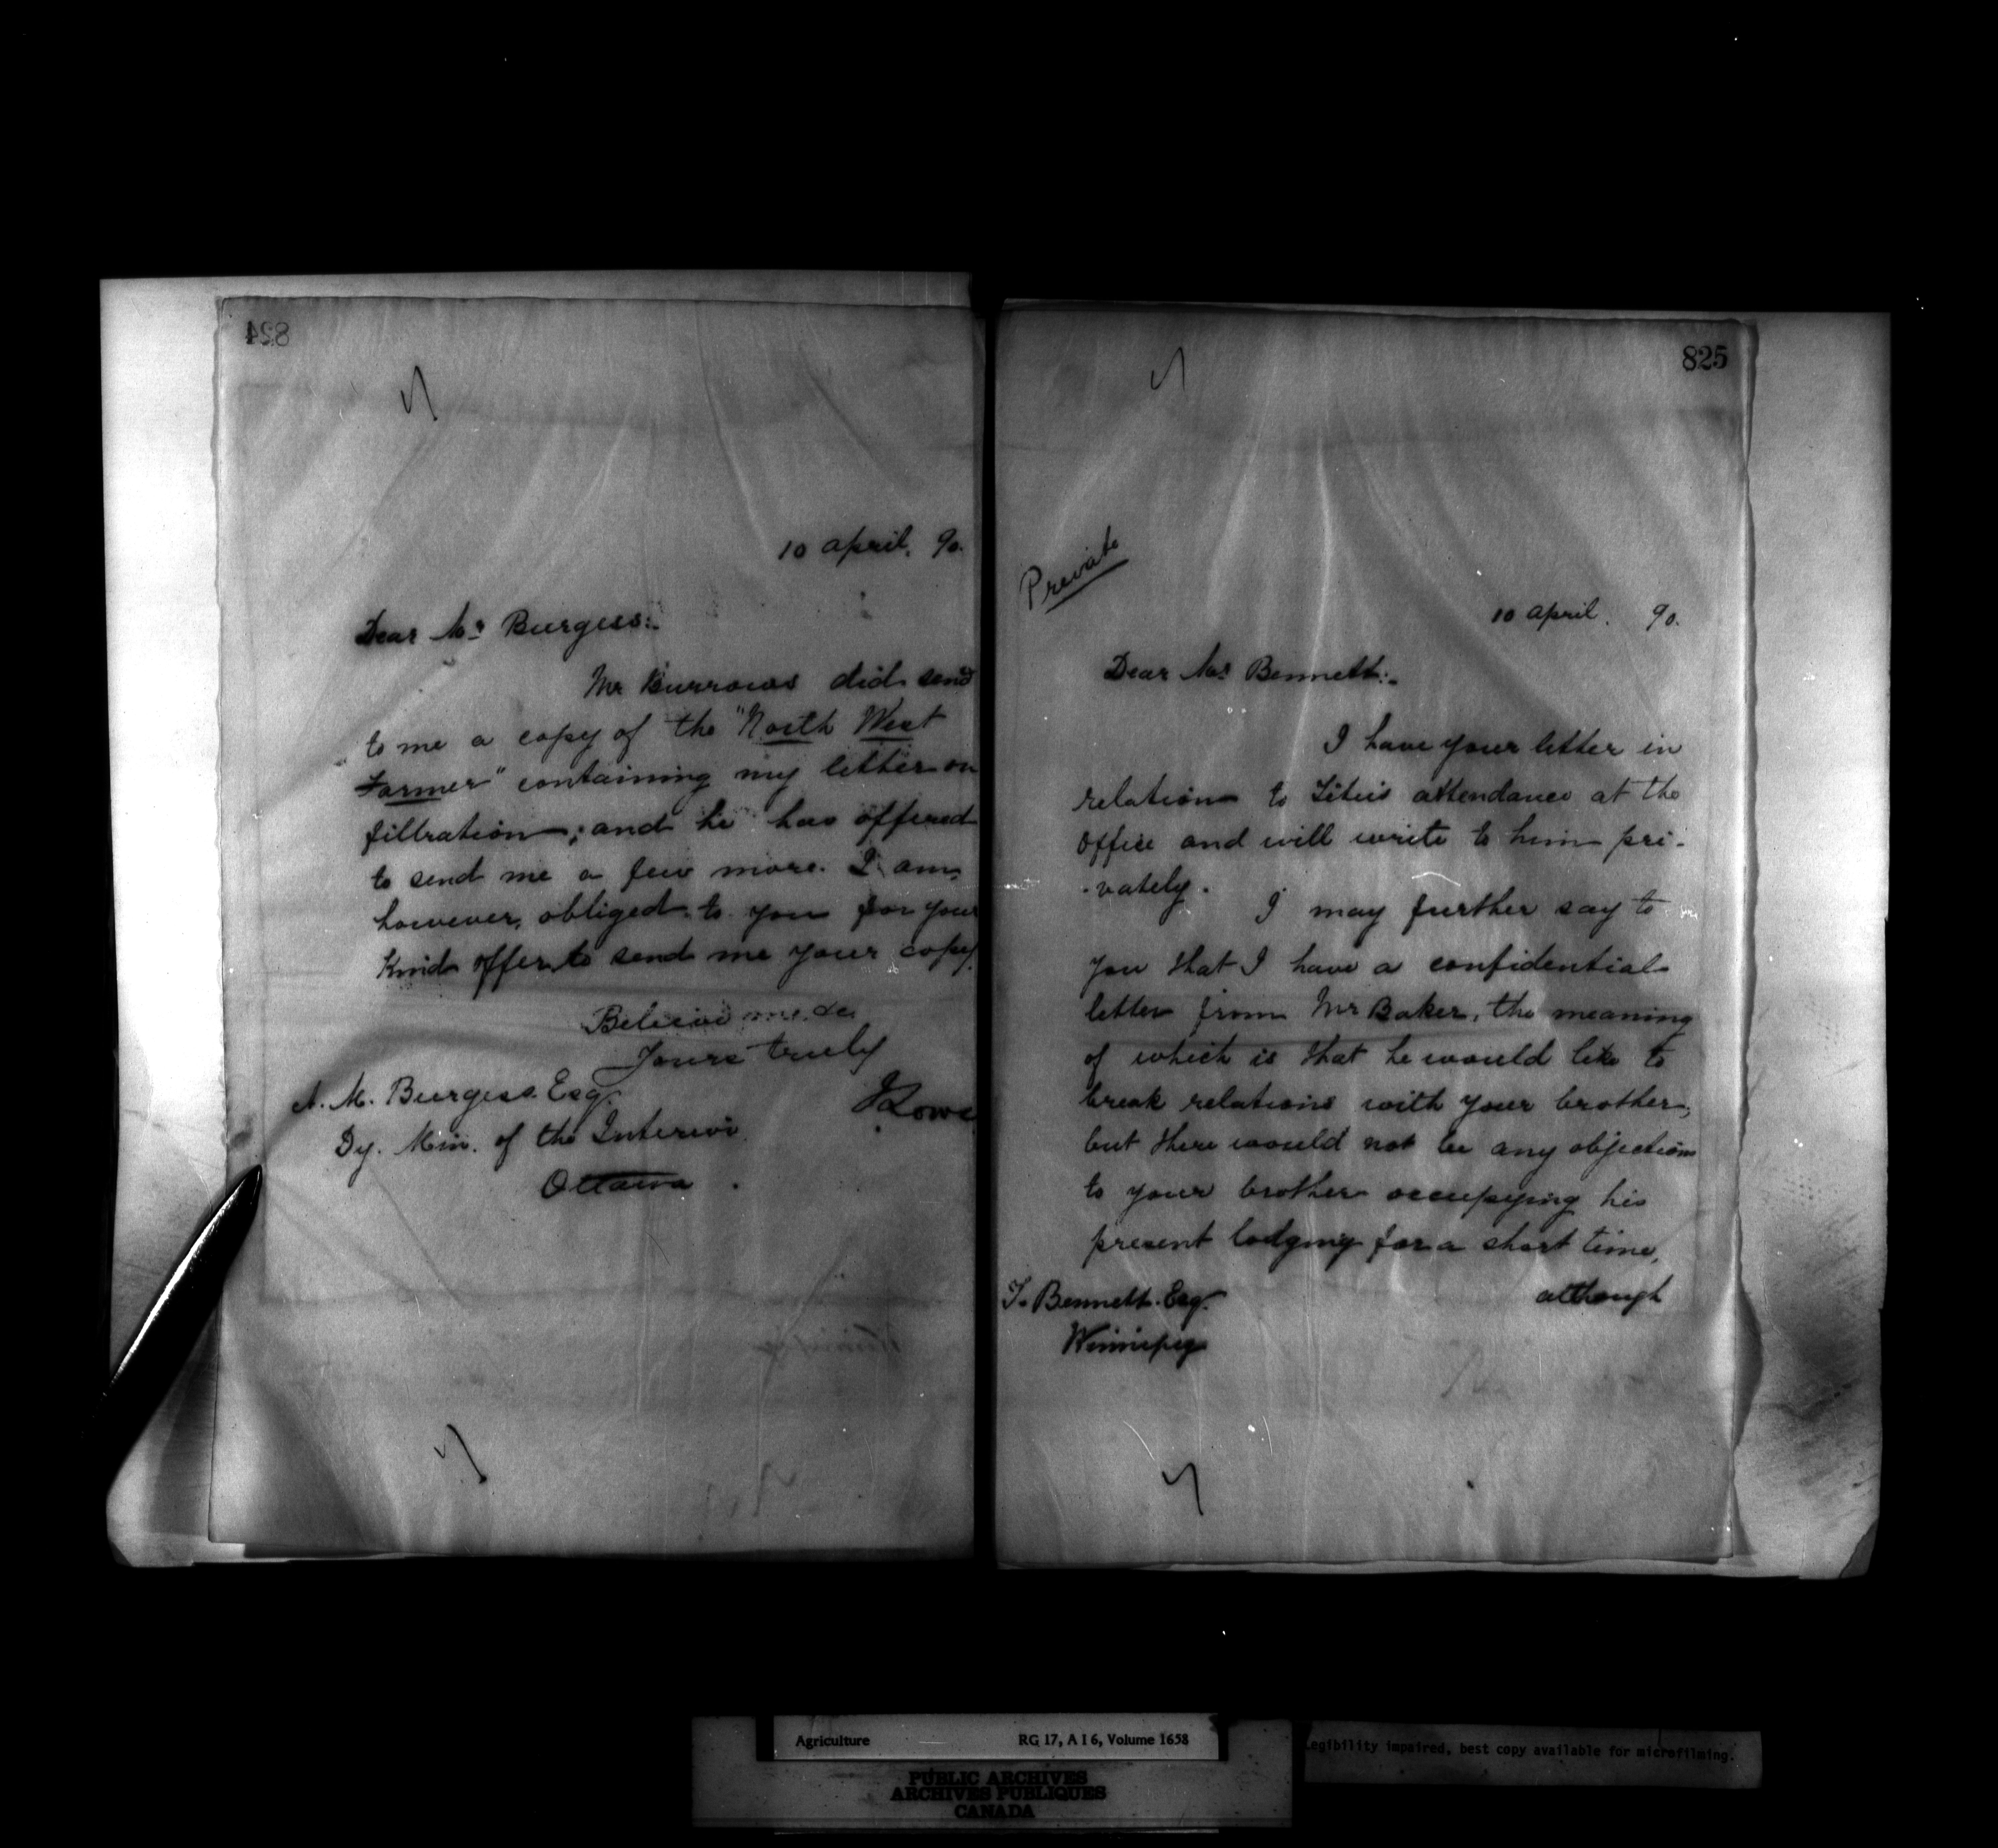 824
10 april. 90.
Dear Mr Burgess:-
Mr Burrows did send
to me a copy of the "North West
Farmer" containing my letter on
filtration; and he has offered
to send me a few more. I am,
however, obliged to you for your
kind offer to send me your copy.
Believe me, &c
Yours truly
JLowe
A. M. Burgess Esq.
Dy. Min. of the Interior
Ottawa.
825
Private
10 april. 90.
Dear Mr Bennett:-
I have your letter in
relation to attendance at the
office and will write to him pri-
-vately.
I may further say to
you that I have a confidential
letter from Mr Baker, the meaning
of which is that he would like to
break relations with your brother,
but there would not be any objections
to your brother occupying his
present lodging for a short time,
although
T. Bennett. Esq.
Winnipeg
Agriculture RG 17, A I 6, Volume 1658
Legibility impaired, best copy available for microfilming.
PUBLIC ARCHIVES
ARCHIVES PUBLIQUES
CANADA